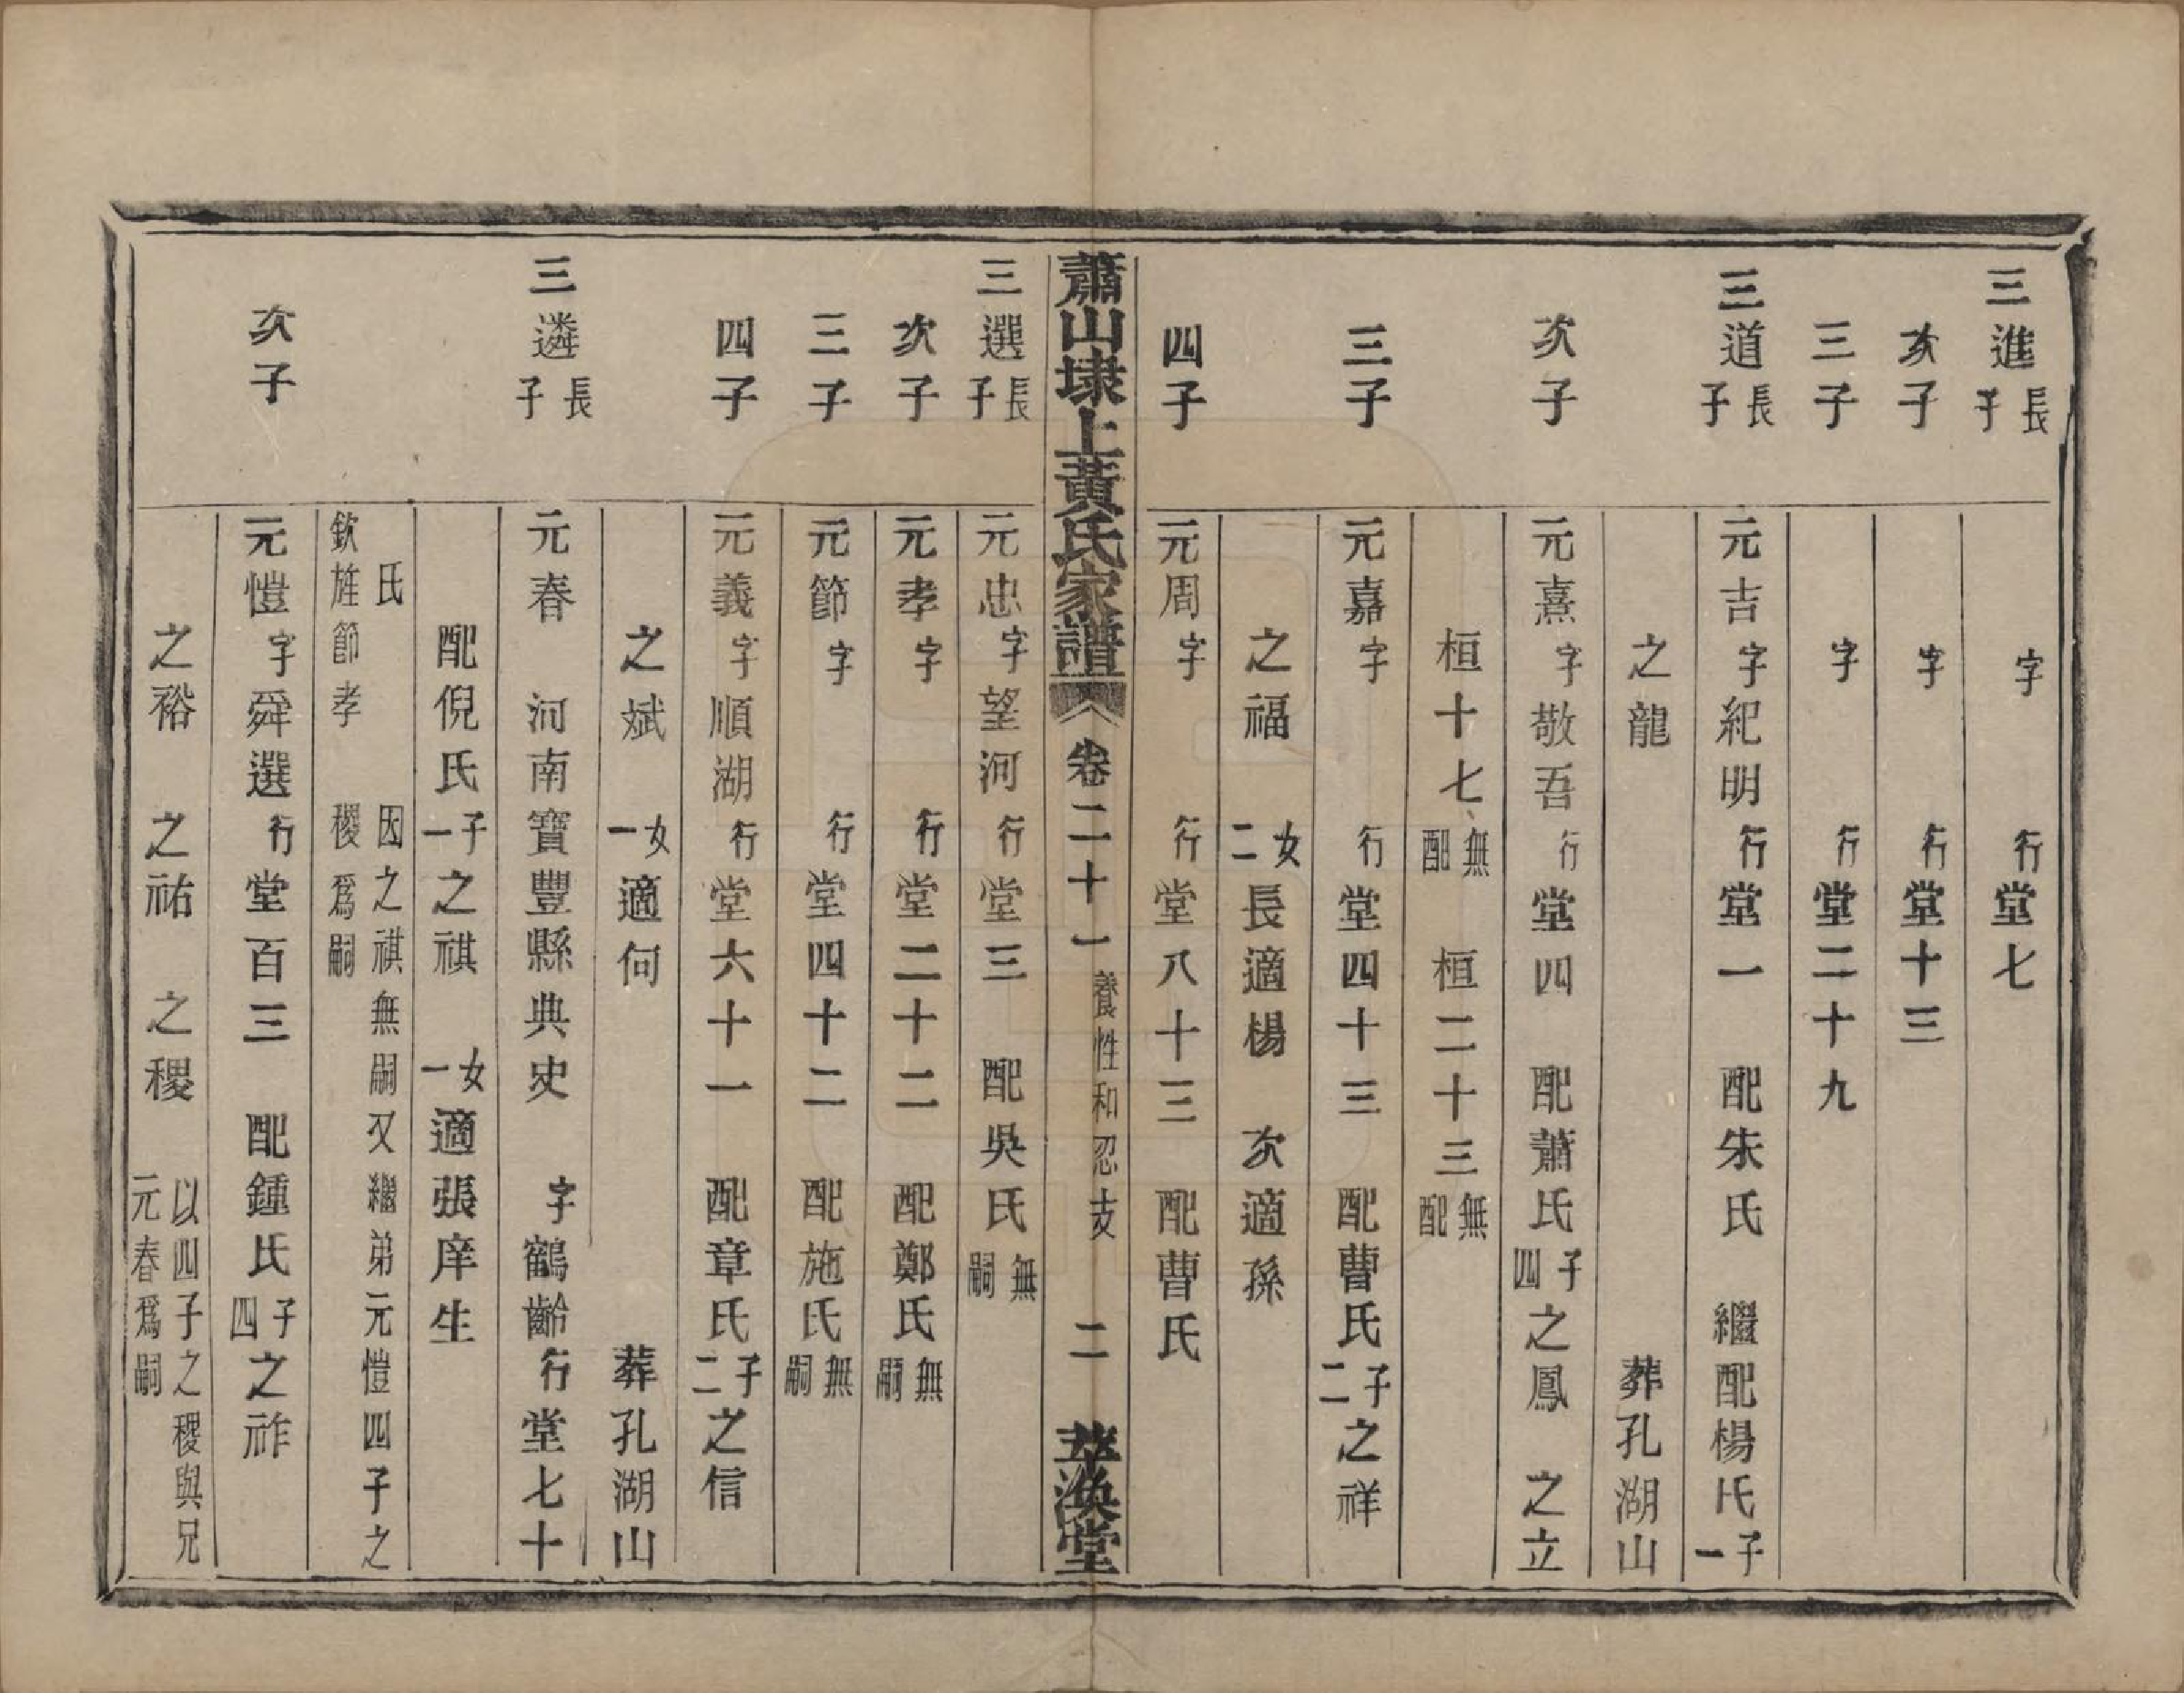 三進長子　字　行堂七
次子　字　行堂十三
三子　字　行堂二十九
三道長子　元吉字紀明行堂一　配朱氏　繼配楊氏子一
之龍　葬孔湖山
次子　元熹字敬吾行堂四　配蕭氏子四之鳳　之立
桓十七無配　桓二十三無配
三子　元嘉字　行堂四十三　配曹氏子二之祥
之福　女二長適楊　次適孫
四子　元周字　行堂八十三　配曹氏
蕭山埭上黃氏家譜　卷二十一養性和忍支　二　萃渙堂
三選長子　元忠字望河行堂三　配吳氏無嗣
次子　元孝字　行堂二十二　配鄭氏無嗣
三子　元節字　行堂四十二　配施氏無嗣
四子　元義字順湖行堂六十一　配章氏子二之信
之斌　女一適何　葬孔湖山
三遴長子　元春　河南寶豐縣典史　字鶴齡行堂七十
配倪氏子一之祺　女一適張庠生
氏　因之祺無嗣又繼弟元愷四子之
欽旌節孝　稷爲嗣
次子　元愷字舜選行堂百三　配鍾氏子四之祚
之裕　之祐　之稷　以四子之稷與兄元春爲嗣